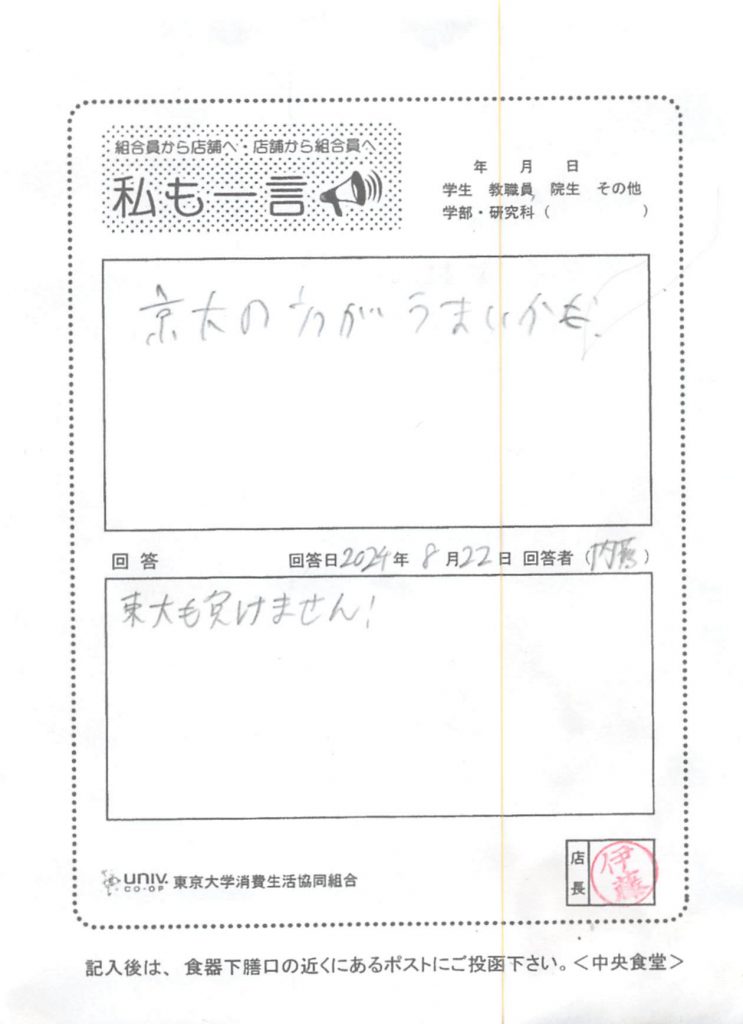 組合員から店舗へ・店舗から組合員へ
私も一言
年 月 日
学生 教職員 院生 その他
学部・研究科（ ）
京大の方がうまいかも.
回答 回答日2024年 8月22日 回答者（内藤）
東大も負けません!
店長 伊藤
UNIV. CO-OP 東京大学消費生活協同組合
記入後は、食器下膳口の近くにあるポストにご投函下さい。＜中央食堂＞